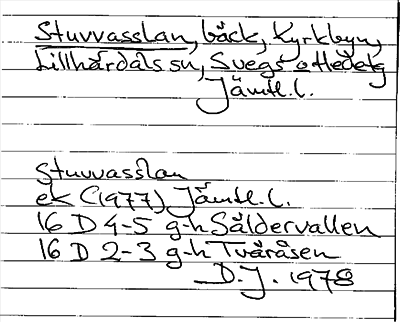 Stuvvasslan, bäck, Kyrkbyn,
Lillhärdals sn, Svegs o Hede tg
Jämtl. l.
Stuvvasslan
ek (1977) Jämtl. l.
16 D 4-5 g-h Säldervallen
16 D 2-3 g-h Tvåråsen
D. J. 1978